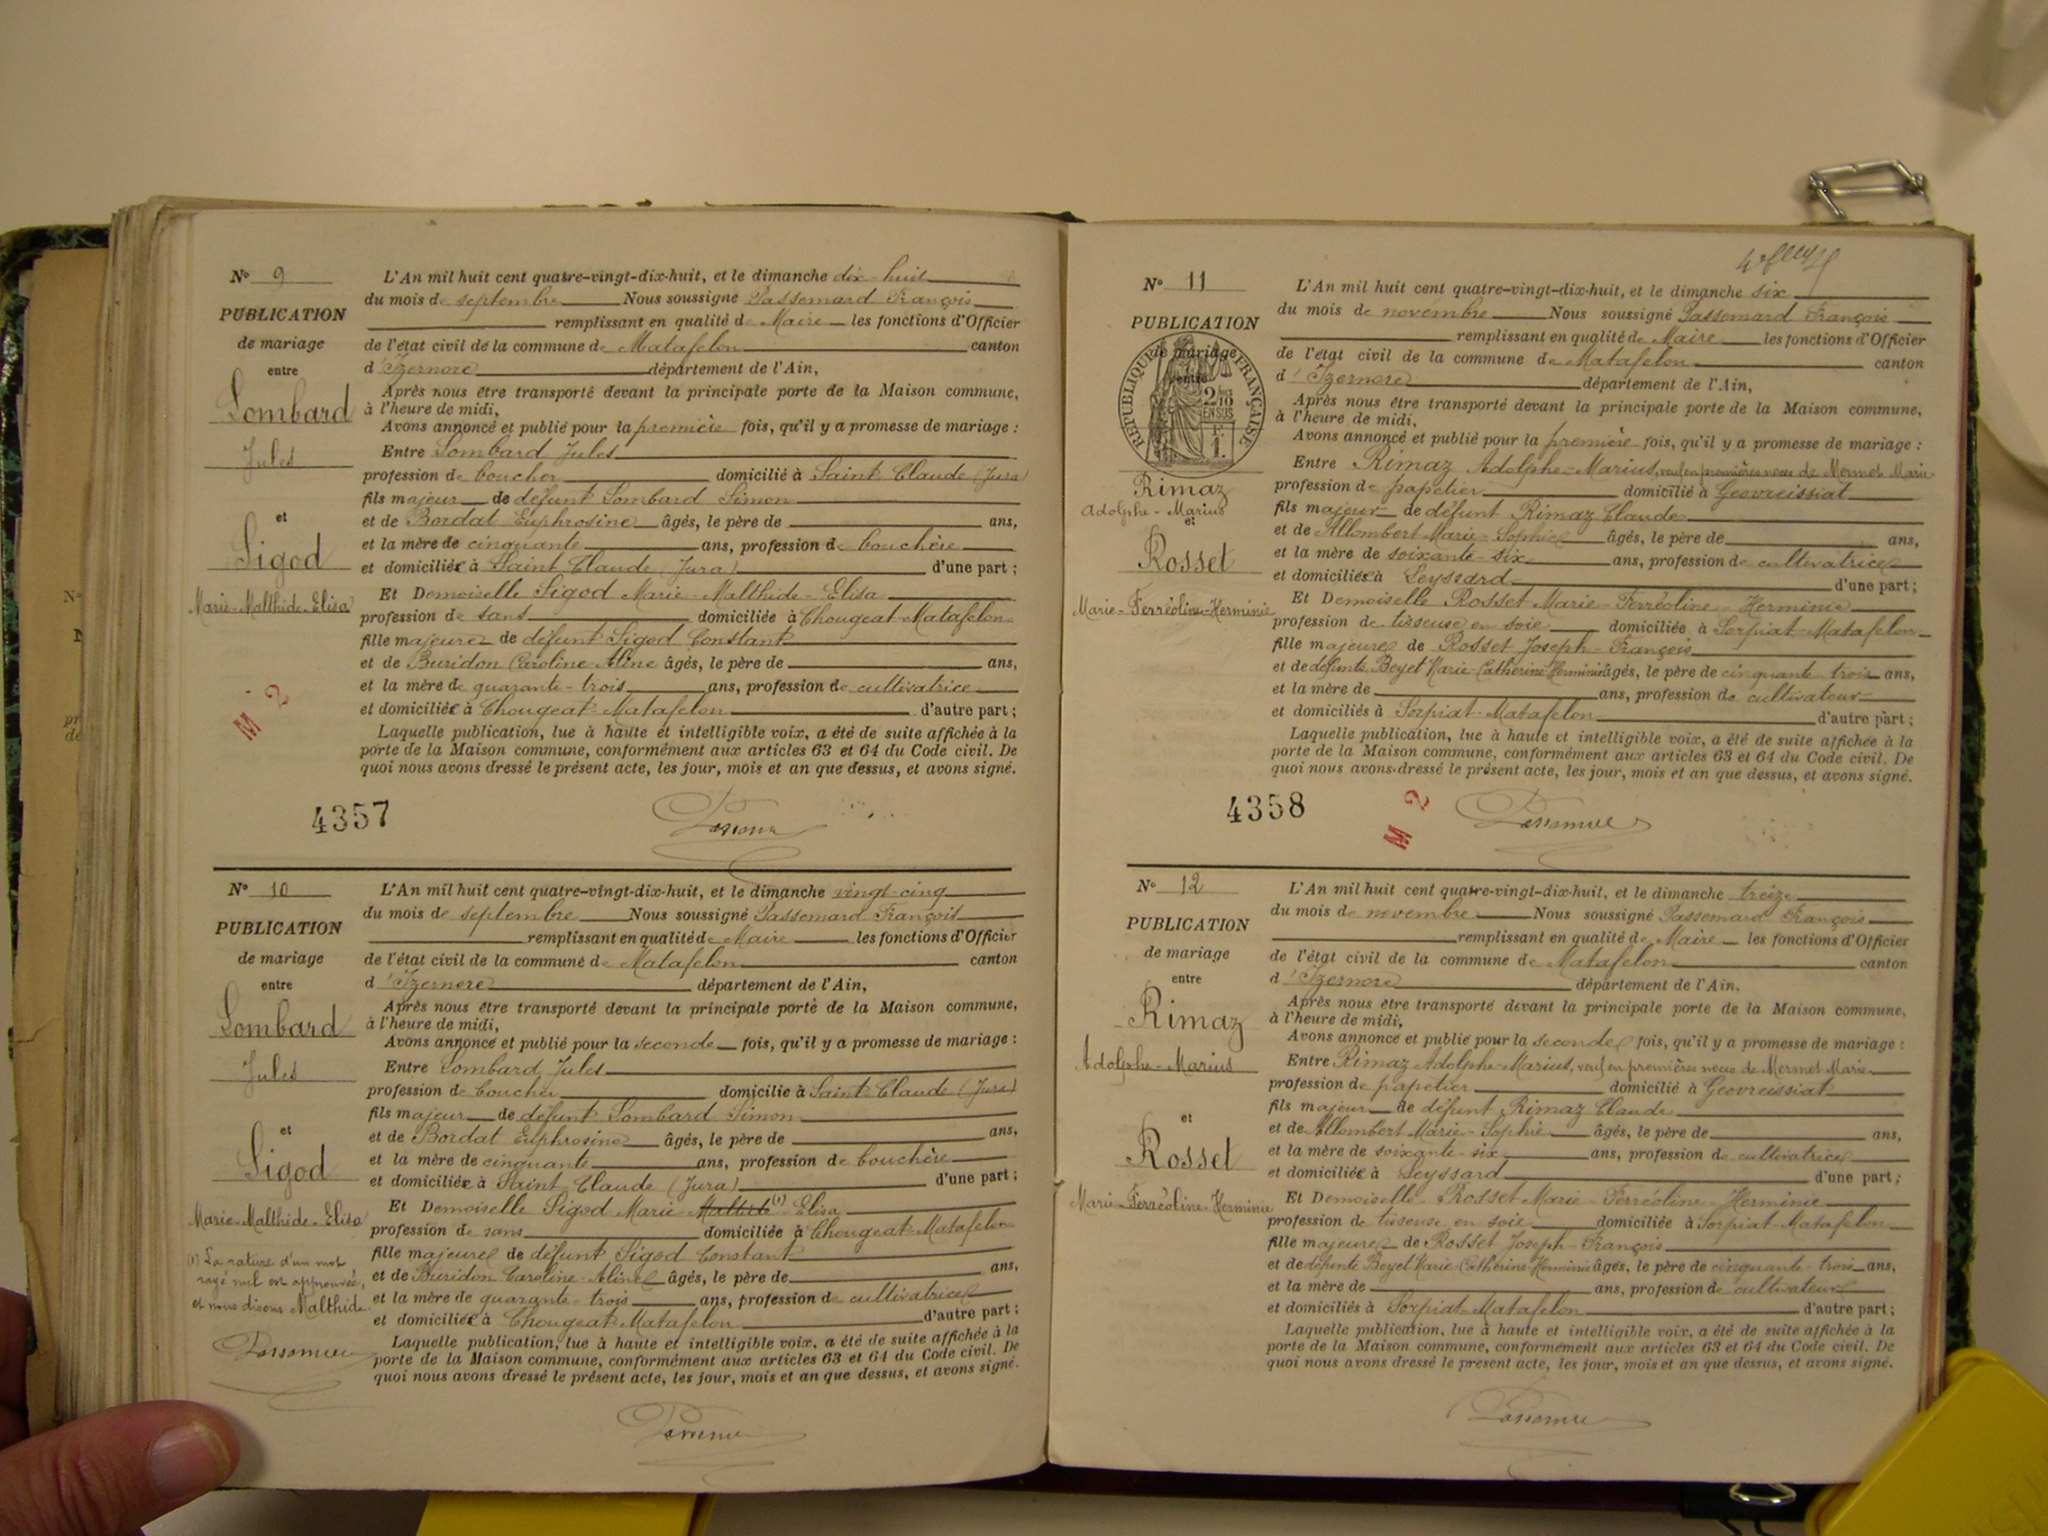 N° 9
PUBLICATION
de mariage
entre
Lombard
Jules
et
Sigod
Marie-Malthide-Elisa
M 2
L'An mil huit cent quatre-vingt-dix-huit, et le dimanche dix-huit
du mois de septembre Nous soussigné Passemard François
remplissant en qualité de Maire les fonctions d'Officier
de l'état civil de la commune de Matafelon canton
d'Izernore département de l'Ain,
Après nous être transporté devant la principale porte de la Maison commune,
à l'heure de midi,
Avons annoncé et publié pour la première fois, qu'il y a promesse de mariage :
Entre Lombard Jules
profession de boucher domicilié à Saint-Claude (Jura)
fils majeur de défunt Lombard Simon
et de Bordat Euphrosine âgés, le père de ans,
et la mère de cinquante ans, profession de bouchère
et domiciliée à Saint Claude (Jura) d'une part ;
Et Demoiselle Sigod Marie-Malthide-Elisa
profession de sans domiciliée à Chougeat-Matafelon
fille majeure de défunt Sigod Constant
et de Buridon Caroline-Aline âgés, le père de ans,
et la mère de quarante-trois ans, profession de cultivatrice
et domiciliée à Chougeat-Matafelon d'autre part ;
Laquelle publication, lue à haute et intelligible voix, a été de suite affichée à la
porte de la Maison commune, conformément aux articles 63 et 64 du Code civil. De
quoi nous avons dressé le présent acte, les jour, mois et an que dessus, et avons signé.
4357
N° 10
PUBLICATION
de mariage
entre
Lombard
Jules
et
Sigod
Marie-Malthide-Elisa
(1) La rature d'un mot
rayé nul est approuvée,
et nous disons Malthide.
L'An mil huit cent quatre-vingt-dix-huit, et le dimanche vingt-cinq
du mois de septembre Nous soussigné Passemard François
remplissant en qualité de Maire les fonctions d'Officier
de l'état civil de la commune de Matafelon canton
d'Izernore département de l'Ain,
Après nous être transporté devant la principale porte de la Maison commune,
à l'heure de midi,
Avons annoncé et publié pour la seconde fois, qu'il y a promesse de mariage :
Entre Lombard Jules
profession de boucher domicilié à Saint-Claude (Jura)
fils majeur de défunt Lombard Simon
et de Bordat Euphrosine âgés, le père de ans,
et la mère de cinquante ans, profession de bouchère
et domiciliée à Saint Claude (Jura) d'une part ;
Et Demoiselle Sigod Marie (1) Elisa
profession de sans domiciliée à Chougeat-Matafelon
fille majeure de défunt Sigod Constant
et de Buridon Caroline-Aline âgés, le père de ans,
et la mère de quarante-trois ans, profession de cultivatrice
et domiciliée à Chougeat-Matafelon d'autre part ;
Laquelle publication, lue à haute et intelligible voix, a été de suite affichée à la
porte de la Maison commune, conformément aux articles 63 et 64 du Code civil. De
quoi nous avons dressé le présent acte, les jour, mois et an que dessus, et avons signé.
N° 11
PUBLICATION
de mariage
entre
RÉPUBLIQUE FRANÇAISE
Rimaz
Adolphe-Marius
et
Rosset
Marie-Ferréoline-Herminie
L'An mil huit cent quatre-vingt-dix-huit, et le dimanche six
du mois de novembre Nous soussigné Passemard François
remplissant en qualité de Maire les fonctions d'Officier
de l'état civil de la commune de Matafelon canton
d'Izernore département de l'Ain,
Après nous être transporté devant la principale porte de la Maison commune,
à l'heure de midi,
Avons annoncé et publié pour la première fois, qu'il y a promesse de mariage :
Entre Rimaz Adolphe-Marius, veuf en premières noces de Mermet Marie
profession de papetier domicilié à Géovreissiat
fils majeur de défunt Rimaz Claude
et de Allombert Marie-Sophie âgés, le père de ans,
et la mère de soixante-six ans, profession de cultivatrice
et domiciliée à Leyssard d'une part ;
Et Demoiselle Rosset Marie-Ferréoline-Herminie
profession de tisseuse en soie domiciliée à Sorpiat-Matafelon
fille majeure de Rosset Joseph-François
et de défunte Beyet Marie-Catherine-Herminie âgés, le père de cinquante-trois ans,
et la mère de ans, profession de cultivateur
et domiciliés à Sorpiat-Matafelon d'autre part ;
Laquelle publication, lue à haute et intelligible voix, a été de suite affichée à la
porte de la Maison commune, conformément aux articles 63 et 64 du Code civil. De
quoi nous avons dressé le présent acte, les jour, mois et an que dessus, et avons signé.
4358
M 2
N° 12
PUBLICATION
de mariage
entre
Rimaz
Adolphe-Marius
et
Rosset
Marie-Ferréoline-Herminie
L'An mil huit cent quatre-vingt-dix-huit, et le dimanche treize
du mois de novembre Nous soussigné Passemard François
remplissant en qualité de Maire les fonctions d'Officier
de l'état civil de la commune de Matafelon canton
d'Izernore département de l'Ain,
Après nous être transporté devant la principale porte de la Maison commune,
à l'heure de midi,
Avons annoncé et publié pour la seconde fois, qu'il y a promesse de mariage :
Entre Rimaz Adolphe-Marius, veuf en premières noces de Mermet Marie
profession de papetier domicilié à Géovreissiat
fils majeur de défunt Rimaz Claude
et de Allombert Marie-Sophie âgés, le père de ans,
et la mère de soixante-six ans, profession de cultivatrice
et domiciliée à Leyssard d'une part ;
Et Demoiselle Rosset Marie-Ferréoline-Herminie
profession de tisseuse en soie domiciliée à Sorpiat-Matafelon
fille majeure de Rosset Joseph-François
et de défunte Beyet Marie-Catherine-Herminie âgés, le père de cinquante-trois ans,
et la mère de ans, profession de cultivateur
et domiciliés à Sorpiat-Matafelon d'autre part ;
Laquelle publication, lue à haute et intelligible voix, a été de suite affichée à la
porte de la Maison commune, conformément aux articles 63 et 64 du Code civil. De
quoi nous avons dressé le présent acte, les jour, mois et an que dessus, et avons signé.